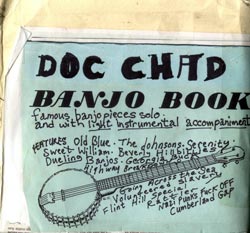 DOC CHAD
BANJO BOOK
famous banjo pieces solo
and with light instrumental accompaniment
FEATURES Old Blue. The Johnsons. Serenity
Sweet William. Beverly Hillbilly
Dueling Banjos. Georgia Buck
Highway Break
Going Across the Sea
Volunteer Slavery
Flint Hill Special
Rat's
Nazi Punks Fuck OFF
Cumberland Gap